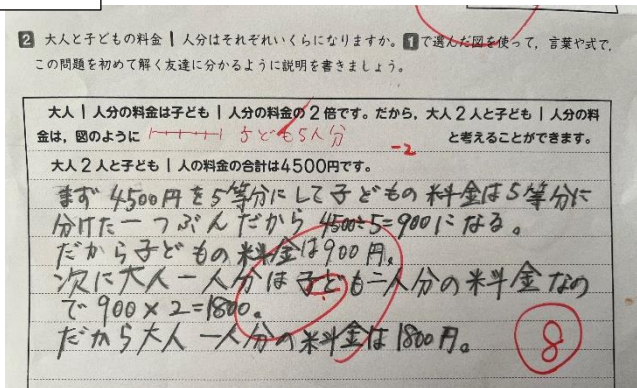 2 大人と子どもの料金1人分はそれぞれいくらになりますか。1で選んだ図を使って，言葉や式で，
この問題を初めて解く友達に分かるように説明を書きましょう。
大人1人分の料金は子ども1人分の料金の2倍です。だから，大人2人と子ども1人分の料
金は，図のように 子ども5人分 と考えることができます。
-2
大人2人と子ども1人の料金の合計は4500円です。
まず4500円を5等分にして子どもの料金は5等分に
分けた一つぶんだから4500÷5=900になる。
だから子どもの料金は900円。
次に大人一人分は子ども二人分の料金なの
で900×2=1800。
だから大人一人分の料金は1800円。
8